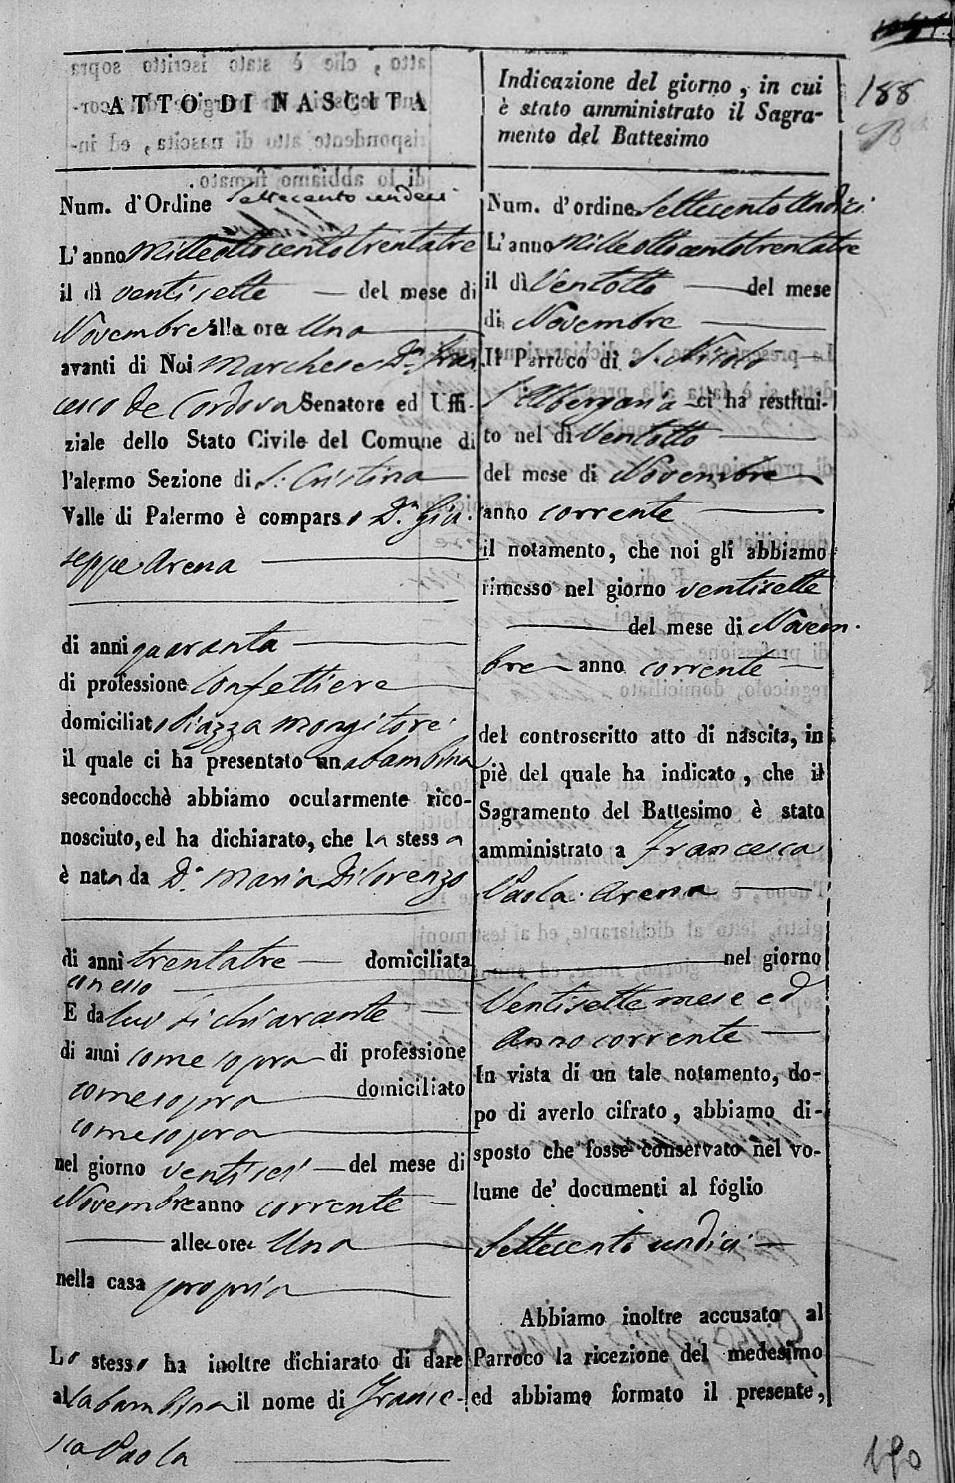 188
ATTO DI NASCITA
Num. d'Ordine Settecento undeci
L'anno Milleottocentotrentatre
il dì ventisette del mese di
Novembre alle ore Una
avanti di Noi Marchese Dn. Fran
cesco de Cordova Senatore ed Uffi-
ziale dello Stato Civile del Comune di
Palermo Sezione di S. Cristina
Valle di Palermo è comparso Dn. Giu
seppe Arena
di anni quaranta
di professione Confettiere
domiciliato Piazza Mongitore
il quale ci ha presentato una bambina
secondocchè abbiamo ocularmente rico-
nosciuto, ed ha dichiarato, che la stessa
è nata da Da. Maria Dilorenzo
di anni trentatre domiciliata
con esso
E da lui dichiarante
di anni come sopra di professione
come sopra domiciliato
come sopra
nel giorno ventisei del mese di
Novembre anno corrente
alle ore Una
nella casa propria
Lo stesso ha inoltre dichiarato di dare
alla bambina il nome di France-
sca Paola
Indicazione del giorno, in cui
è stato amministrato il Sagra-
mento del Battesimo
Num. d'ordine Settecento Undici
L'anno Milleottocentotrentatre
il dì Ventotto del mese
di Novembre
Il Parroco di S. Nicolò
l'Albergaria ci ha restitui-
to nel dì Ventotto
del mese di Novembre
anno corrente
il notamento, che noi gli abbiamo
rimesso nel giorno ventisette
del mese di Novem
bre anno corrente
del controscritto atto di nascita, in
piè del quale ha indicato, che il
Sagramento del Battesimo è stato
amministrato a Francesca
Paola Arena
nel giorno
Ventisette mese ed
Anno corrente
In vista di un tale notamento, do-
po di averlo cifrato, abbiamo di-
sposto che fosse conservato nel vo-
lume de' documenti al foglio
Settecento undici
Abbiamo inoltre accusato al
Parroco la ricezione del medesimo
ed abbiamo formato il presente,
190